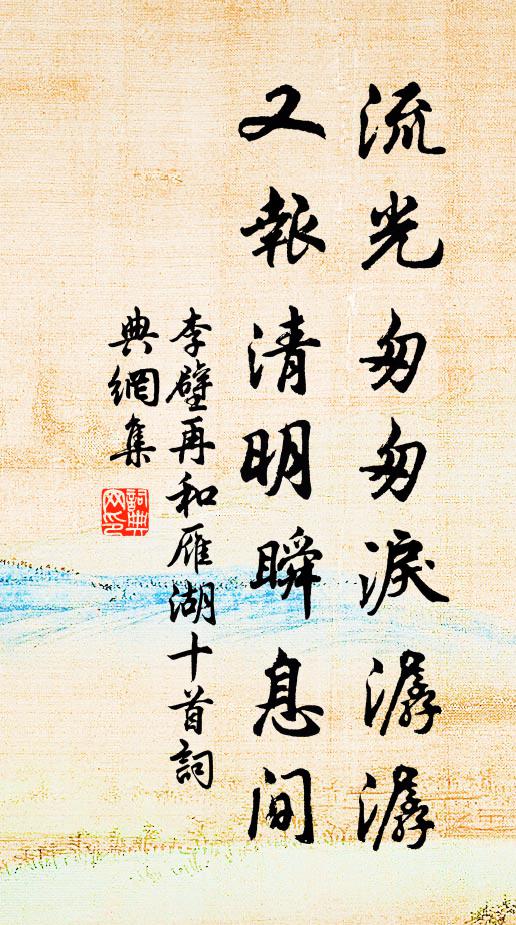 流光匆匆淚潺潺
又報清明瞬息間
李壁再和雁湖十首詞
典網集
詞典網印